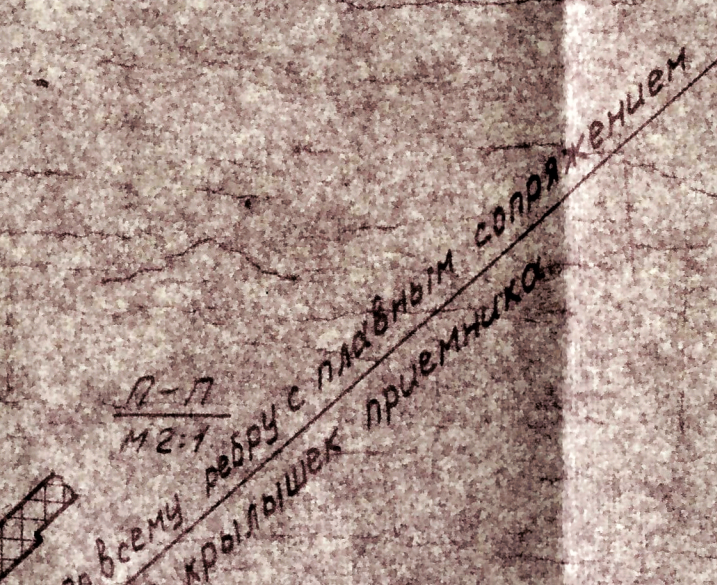 П-П
М 2:1
по всему ребру с плавным сопряжением
крылышек приемника.